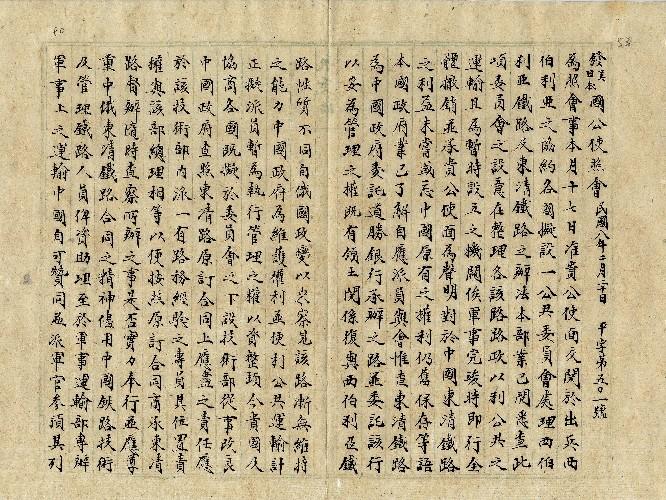 發美日本國公使照會 民國八年二月二十日 甲字第五〇一號
為照會事本月十七日准貴公使面交關於出兵西
伯利亞之協約各國擬設一公共委員會處理西伯
利亞鐵路及東清鐵路之辦法本部業已閱悉查此
項委員會之設意在整理各該路路政以利公共之
運輸且為暫時設立之機關俟軍事完竣時即行全
體撤銷並承貴公使面為聲明對於中國東清鐵路
之利益未嘗或忘中國原有之權利仍舊保存等語
本國政府業已了解自應派員與會惟查東清鐵路
為中國政府委託道勝銀行承辦之路並委託該行
以妥為管理之權既有領土關係復與西伯利亞鐵
路性質不同自俄國政變以來察見該路漸無維持
之能力中國政府為維護權利並便利公共運輸計
正擬派員暫為執行管理之權以資整頓今貴國及
協商各國既擬於委員會之下設技術部從事改良
中國政府查照東清路原訂合同上應盡之責任應
於該技術部內派一有路務經驗之專員其位置責
權與該部總理相等以便按照原訂合同商承東清
路督辦隨時查察所辦之事是否實力奉行並應尊
重中俄東清鐵路合同之精神優用中國鐵路技術
及管理鐵路人員俾資助理至於軍事運輸部專辦
軍事上之運輸中國自可贊同並派軍官參預其列